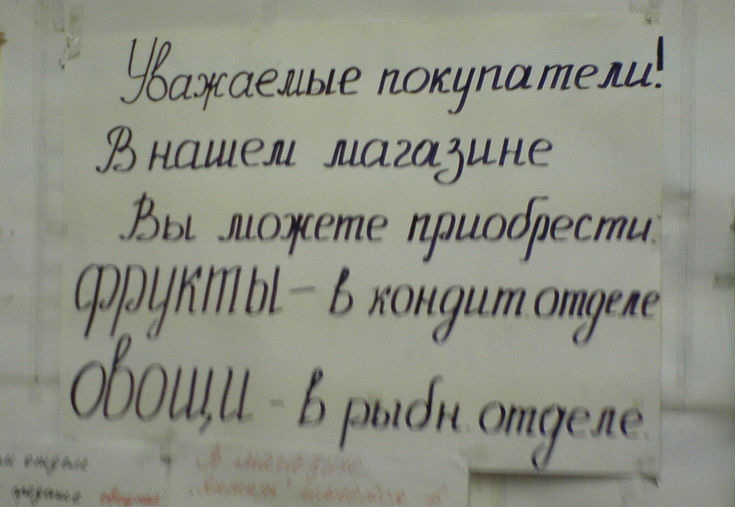 Уважаемые покупатели!
В нашем магазине
Вы можете приобрести:
ФРУКТЫ – в кондит. отделе
ОВОЩИ – в рыбн. отделе.
В магазине